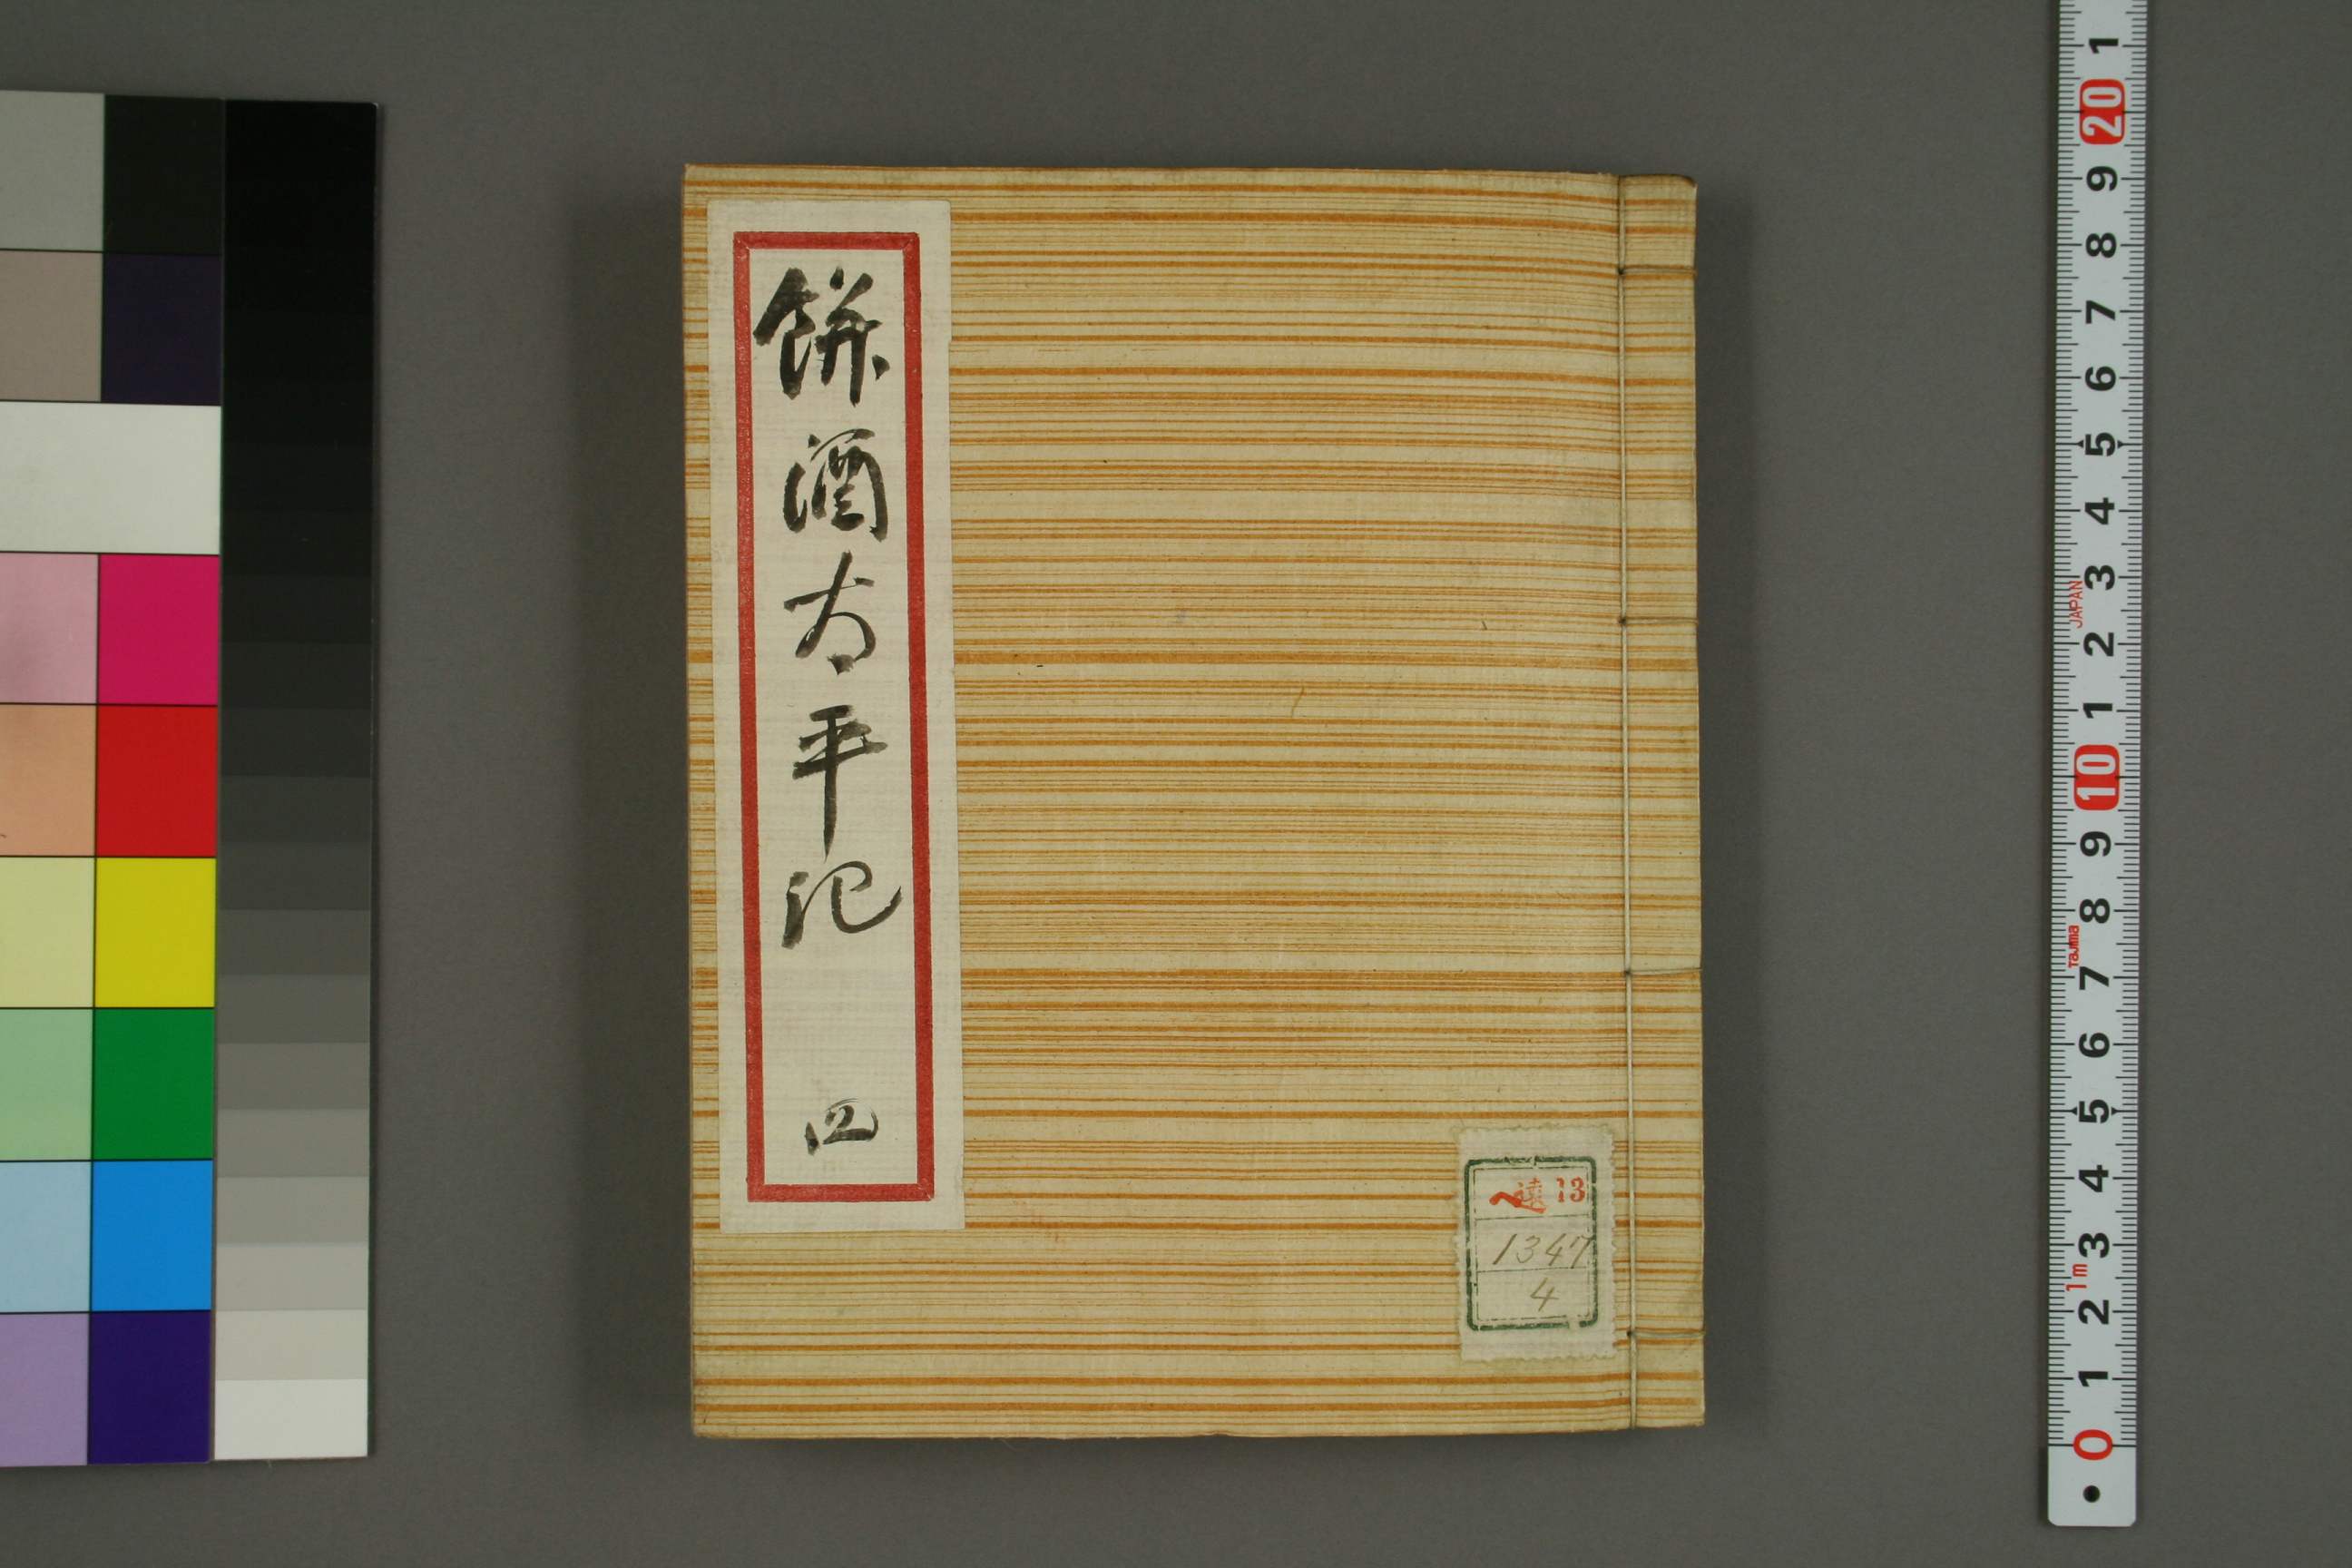 餅酒太平記 四
へ遠 13
1347
4
1 20 9 8 7 6 5 4 3 2 1 10 9 8 7 6 5 4 3 2 1 0
JAPAN
Tajima
1m